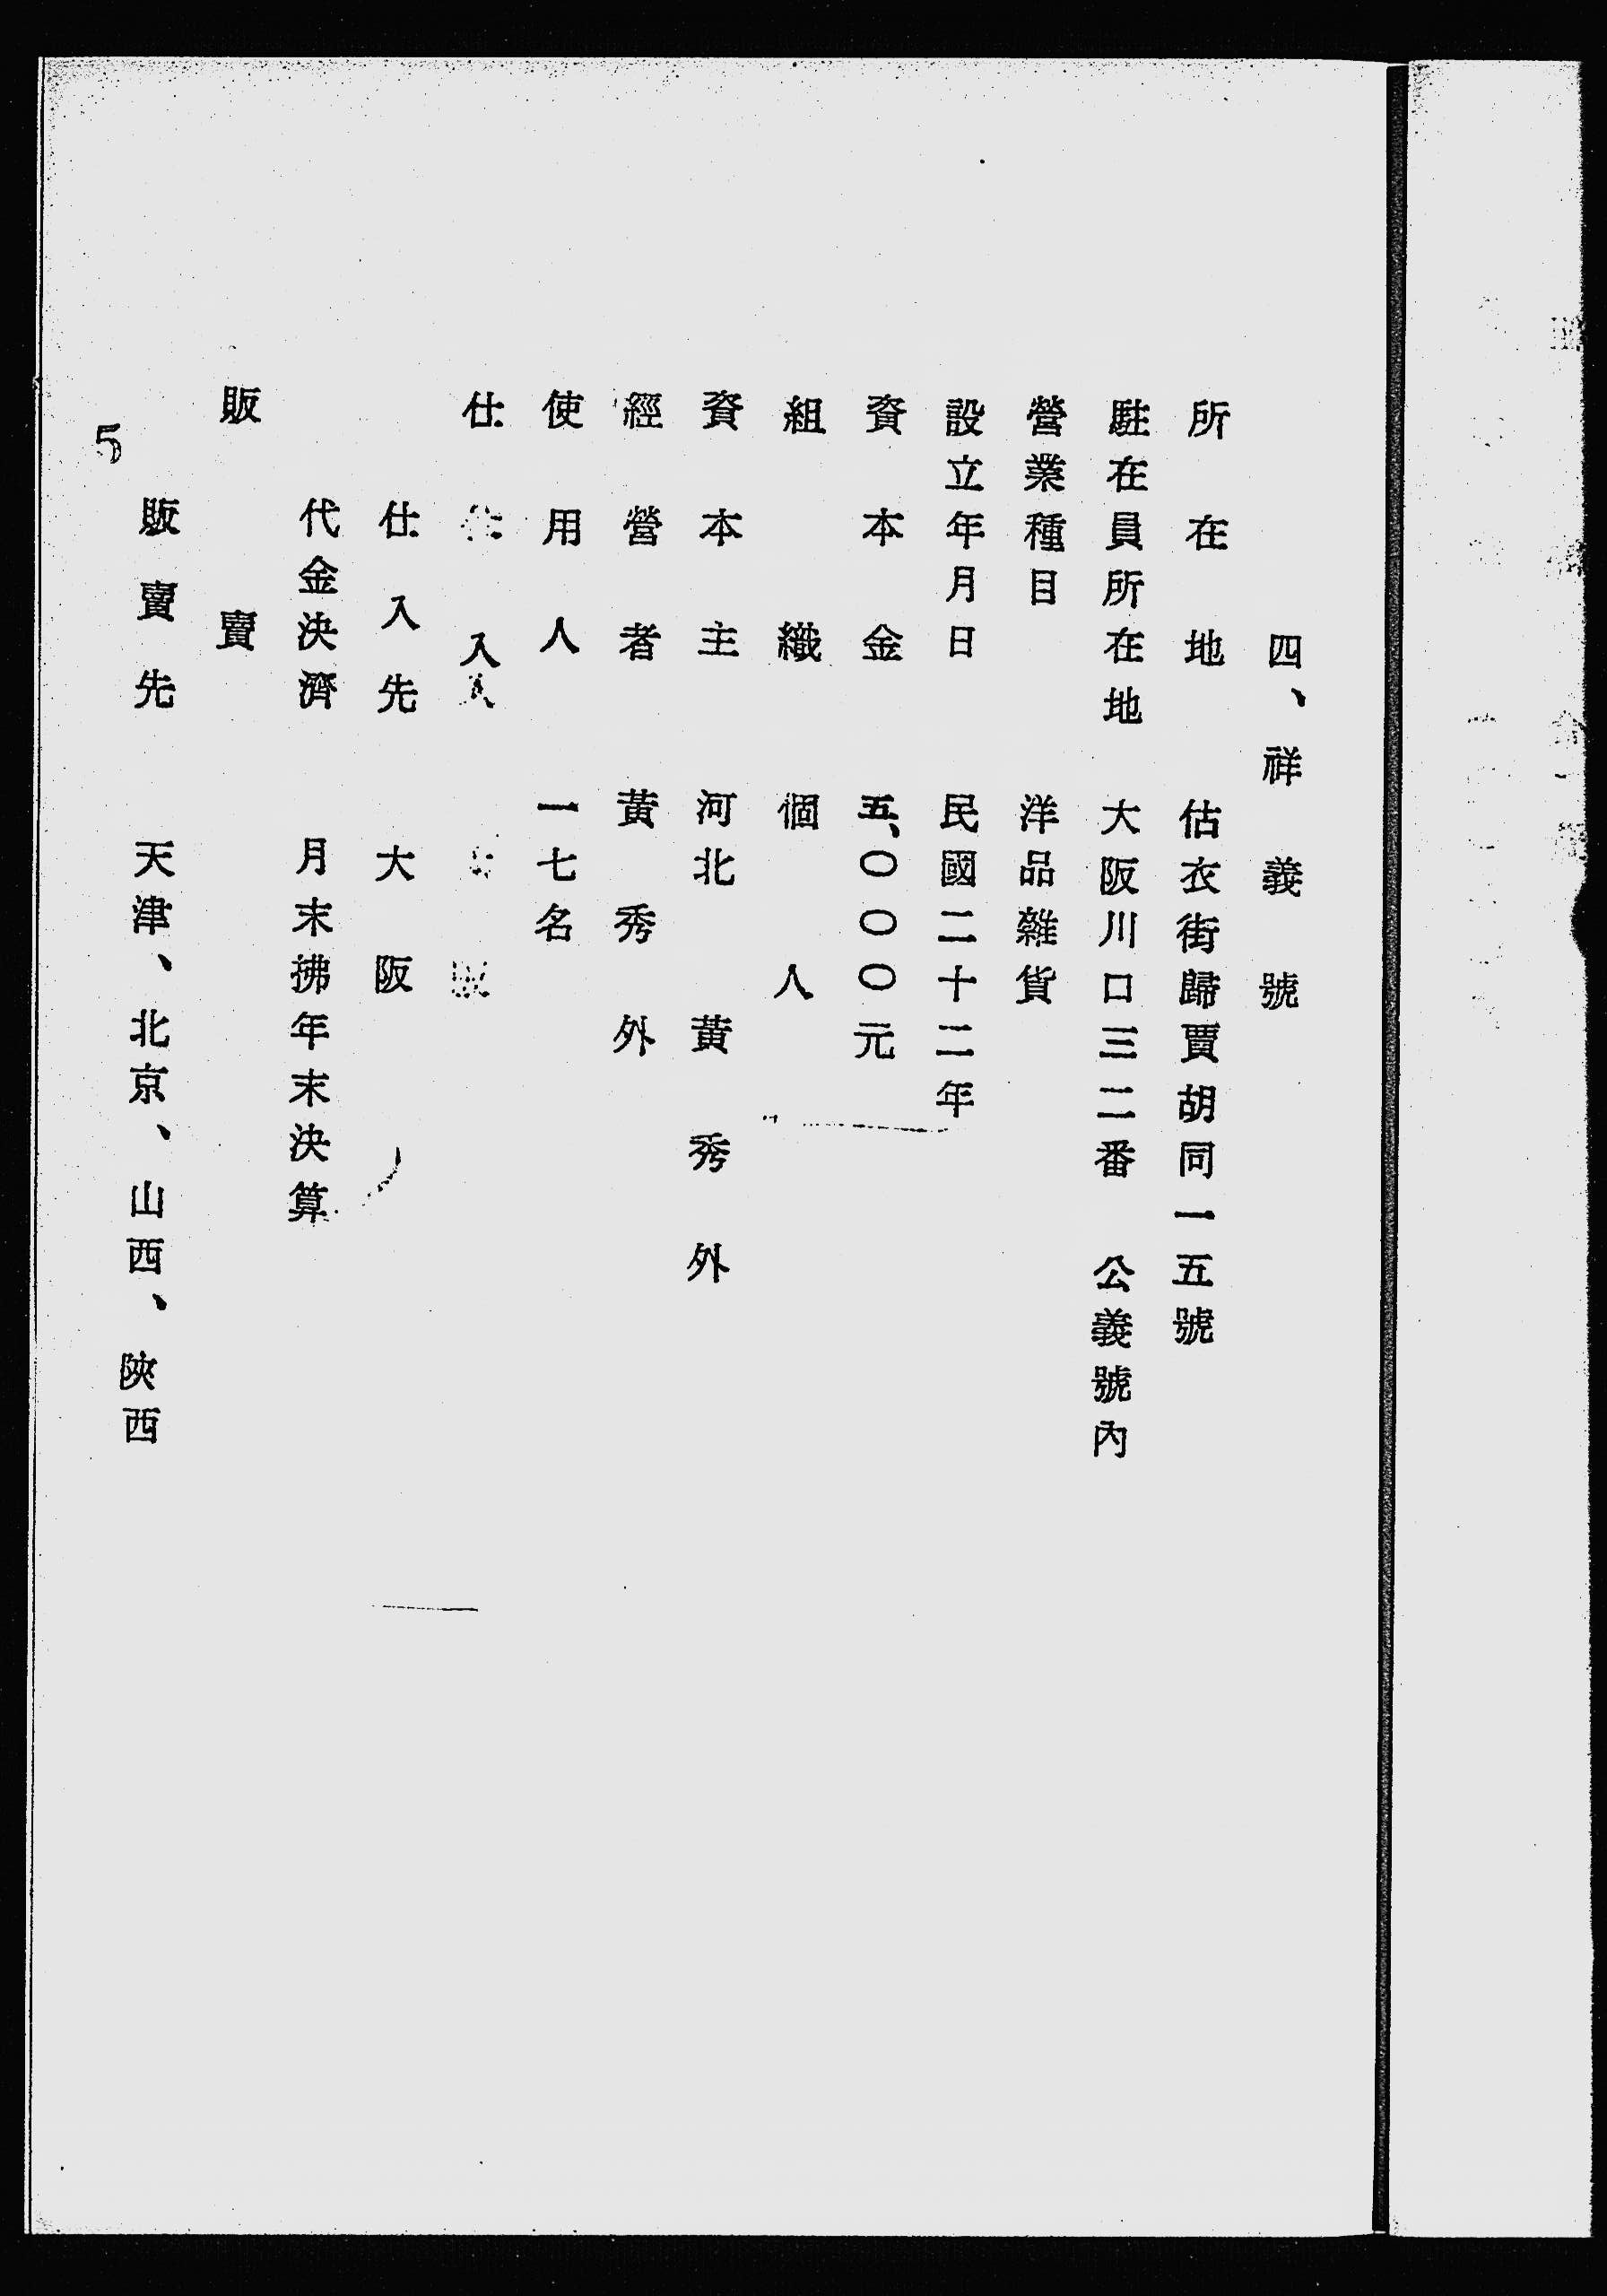 四、祥義號
所在地 估衣街歸賈胡同一五號
駐在員所在地 大阪川口三二番 公義號內
營業種目 洋品雜貨
設立年月日 民國二十二年
資本金 五、〇〇〇元
組織 個人
資本主 河北 黃秀外
經營者 黃秀外
使用人 一七名
仕入
仕入先 大阪
代金決濟 月末拂年末決算
販賣
販賣先 天津、北京、山西、陝西
5